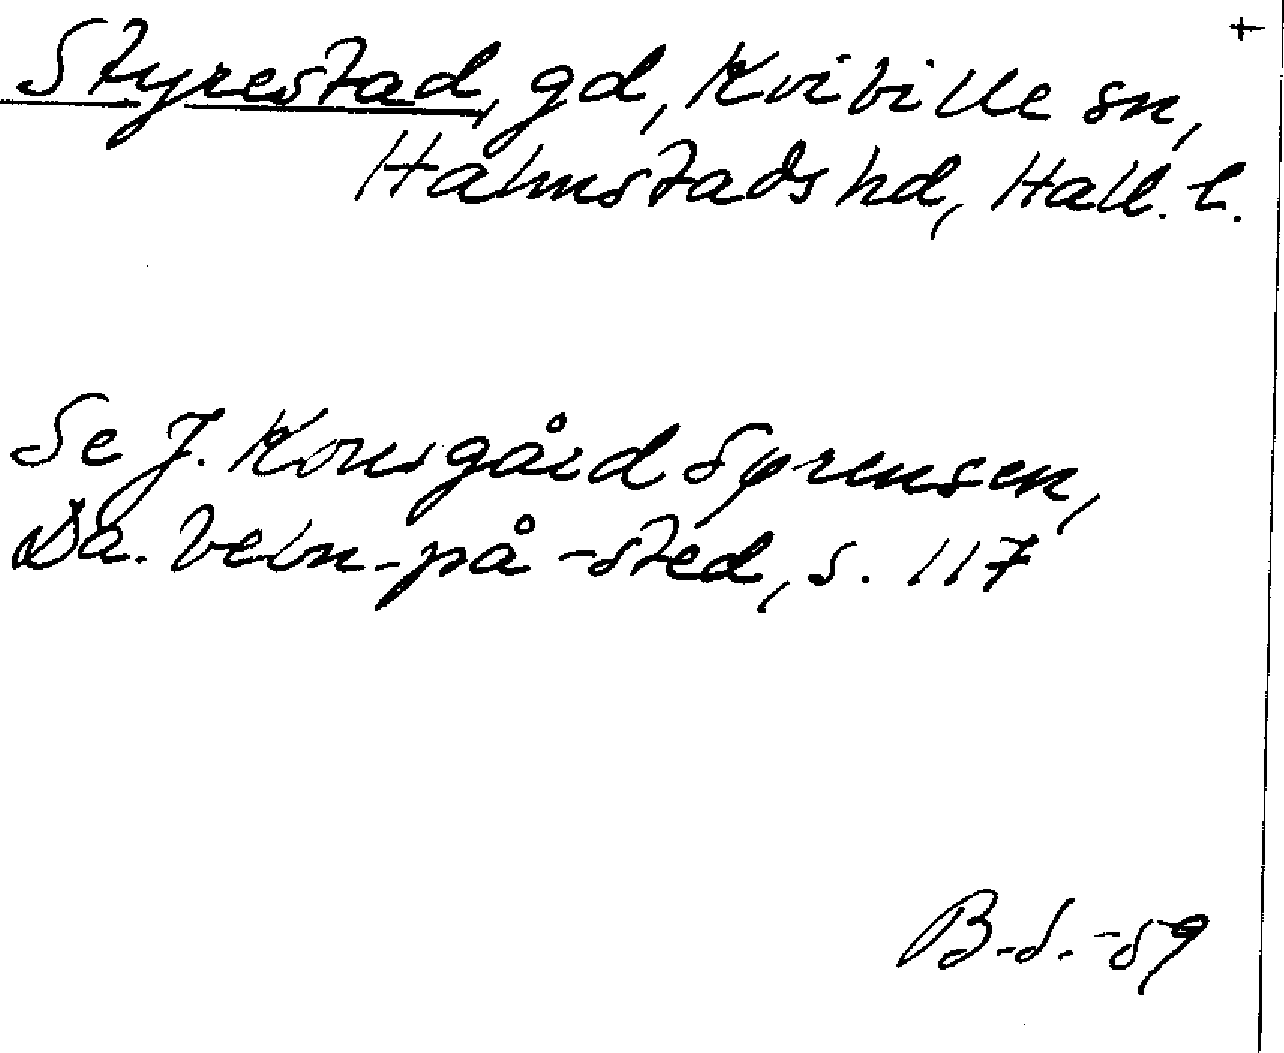 +
Styrestad, gd, Kvibille sn,
Halmstads hd, Hall. l.
Se J. Kousgård Sørensen,
Da. bebn. på -sted, s. 117
B.S. -59